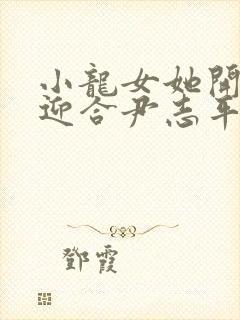 小龍女她開
迎合尹志平
鄧霞